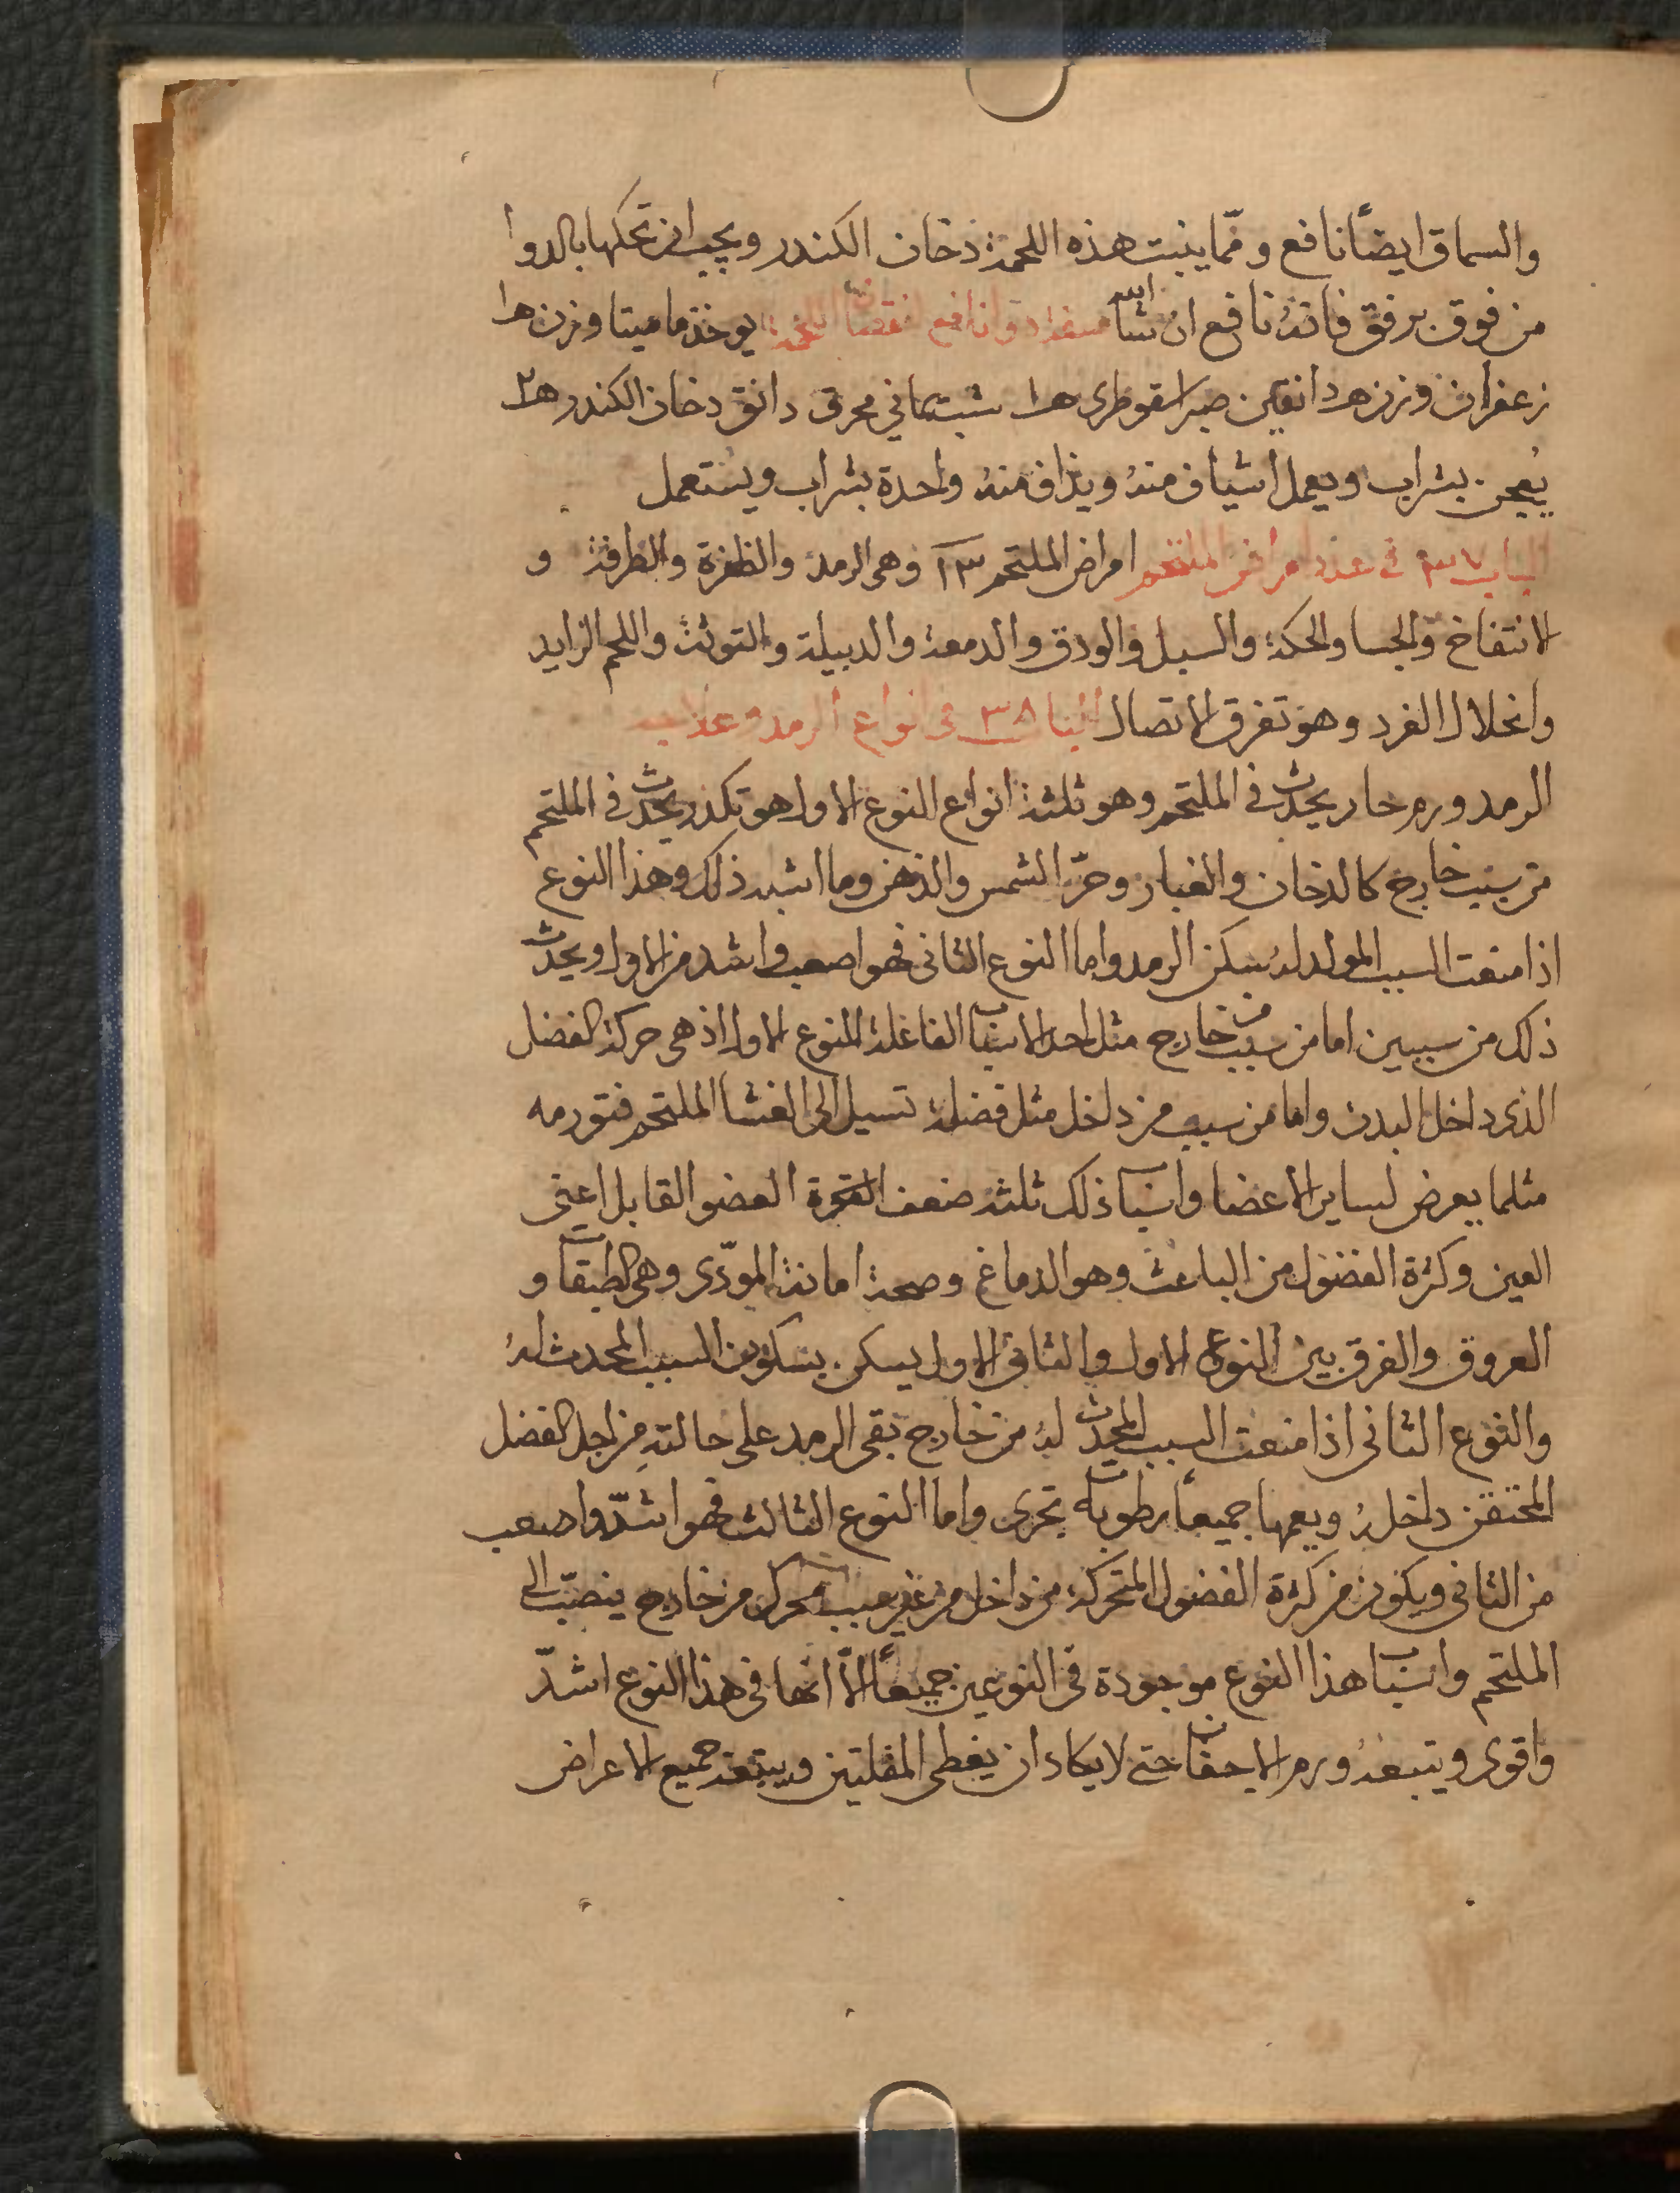 والسماق ايضاً نافع ومّما ينبت هذه اللحمة دخان الكندر ويجب ان تحكها بالدوا
من فوق برفق فانهُ نافع ان شا الله صفة دوا نافع لنقصان اللحمة يوخذ ماميتا وزن هـ ١
زعفران وزن هـ دانقين صبر اسقوطرى هـ ١ شب يماني محرق دانق دخان الكندر هـ ٢
يُعجن بشراب ويعمل اشياف منهُ ويذاف منهُ واحدة بشراب ويستعمل
الباب ٣٧ في عدد امراض الملتحم امراض الملتحم ١٣ وهى الرمد والظفرة والطرفة و
الانتفاخ والجسا والحكة والسبل والودق والدمعة والدبيلة والتوثة واللحم الزايد
وانحلال الفرد وهو تفرق الاتصال الباب ٣٨ فى انواع الرمد وعلاجه
الرمد ورم حار يحدث في الملتحم وهو ثلثة انواع النوع الاول هو تكدر يحدث في الملتحم
من سبب خارج كالدخان والغبار وحرّ الشمس والدهن وما اشبه ذلك وهذا النوع
اذا منعت السبب المولد لهُ سكن الرمد واما النوع الثانى فهو اصعب واشد من الاول ويحدث
ذلك من سببين اما من سبب من خارج مثل احد الاسباب الفاعلة للنوع الاول اذ هى حركة الفضل
الذى داخل البدن واما من سبب من داخل مثل فضلة تسيل الى الغشا الملتحم فتورمه
مثلما يعرض لساير الاعضا واسباب ذلك ثلثة ضعف العضو القابل اعنى
العين وكثرة الفضول من الباعث وهو الدماغ وصحة امانة المودّى وهى الطبقات و
العروق والفرق بين النوع الاول والثانى الاول يسكن بسكون السبب المحدث لهُ
والنوع الثانى اذا منعت السبب المحدث لهُ من خارج بقى الرمد على حالته من اجل الفضل
المحتقن داخلهُ ويعمها جميعاً رطوبات تجرى واما النوع الثالث فهو اشدّ واصعب
من الثانى ويكون من كثرة الفضول المتحركة من داخل من غير سبب محرك من خارج ينصبّ الى
الملتحم واسباب هذا النوع موجودة في النوعين جميعاً الّا انها في هذا النوع اشدّ
واقوى ويتبعهُ ورم الاجفان حتى لا يكاد ان يغطى المقلتين ويتبعه جميع الاعراض